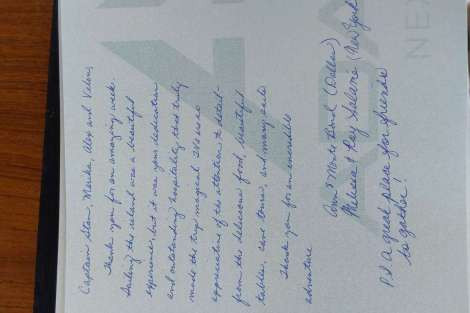 Captain Stan, Marika, Alex and
Thank you for an amazing week.
Sailing the island was a beautiful
experience, but it was your dedication
and outstanding hospitality that truly
made the trip magical. We were so
appreciative of the attention to detail -
from the delicious food, beautiful
tables, cave tours, and many
Thank you for an incredible
adventure
Ann & Monte (Dallas)
Melissa & Ray (New York)
PS A great place for friends
to gather!